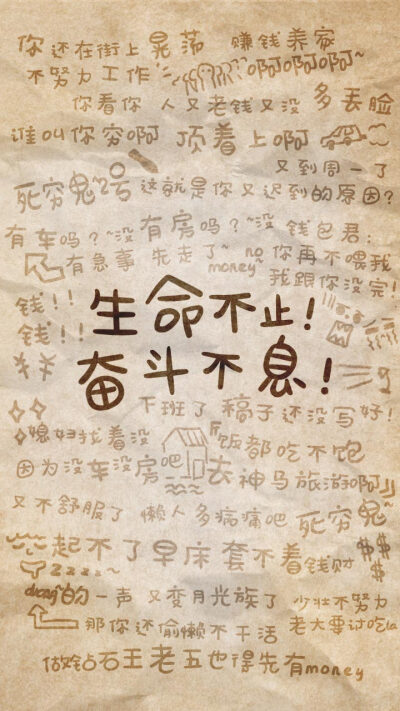 你还在街上晃荡 赚钱养家
不努力工作~ 啊啊啊啊~
你看你 人又老钱又没 多丢脸
谁叫你穷啊 顶着上啊
又到周一了
死穷鬼~2号 这就是你又迟到的原因?
有车吗?~没 有房吗?~没 钱包君:
有急事 先走了~ no money~ 你再不喂我
我跟你没完!
钱!!
钱!!
生命不止!
奋斗不息!
下班了 稿子还没写好!
媳妇找着没 饭都吃不饱
因为没车没房吧 去神马旅游啊
又不舒服了 懒人多病痛吧 死穷鬼~
起不了早床套不着钱财 $$
zzzz~ $
duang的一声 又变月光族了 少壮不努力
那你还偷懒不干活 老大要讨吃la
做钻石王老五也得先有money